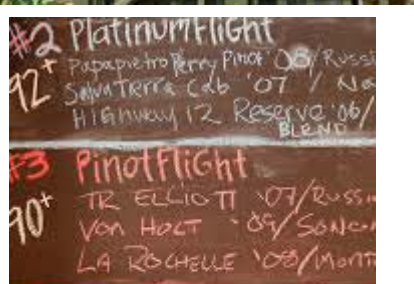 #2 PlatinumFlight
92+ PapapietroPerry Pinot '08/Russi
Salvatierra Cab '07 / Na
Highway 12 Reserve '06/
BLEND
#3 PinotFlight
90+ TR ELLIOTT '07/Russi
Von Holt '09/Sonom
LA ROCHELLE '08/Mont